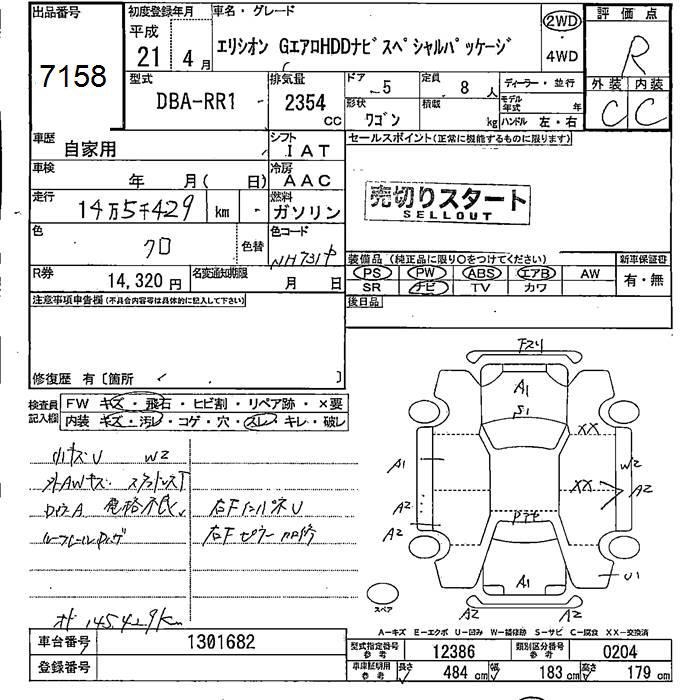 出品番号
7158
初度登録年月
平成
21年 4月
車名・グレード
エリシオン GエアロHDDナビスペシャルパッケージ
2WD
4WD
評価点
R
外装 内装
C C
型式
DBA-RR1
排気量
2354 CC
ドア
5
定員
8 人
形状
ワゴン
積載
kg
ディーラー・並行
モデル年式 年
ハンドル 左・右
車歴
自家用
シフト
IAT
車検
年 月( 日)
冷房
AAC
走行
14万5千429 km
燃料
ガソリン
色
クロ
色替
色コード
NH731P
R券
14,320 円
名変通知期限
月 日
セールスポイント(正常に機能するものに限ります)
売切りスタート
SELLOUT
装備品 (純正品に限り○をつけてください)
PS PW ABS エアB AW
SR ナビ TV カワ
新車保証書
有・無
後日品
注意事項申告欄(不具合内容等は具体的に記入して下さい)
修復歴 有〔箇所 〕
検査員記入欄
FW キズ・飛石・ヒビ割・リペア跡・×要
内装 キズ・汚レ・コゲ・穴・スレ・キレ・破レ
小キズU W2
外AWキズ
右Fインパネ U
右Fピラー
オド 145429km
下スリ
A1
S1
XX
A1
W2
XX
A2
A2
A2
A1
U1
A2
A2
スペア
A−キズ E−エクボ U−凹み W−補修跡 S−サビ C−腐食 XX−交換済
車台番号
1301682
登録番号
型式指定番号 参考
12386
類別区分番号 参考
0204
車庫証明用 参考
長さ 484 cm
幅 183 cm
高さ 179 cm